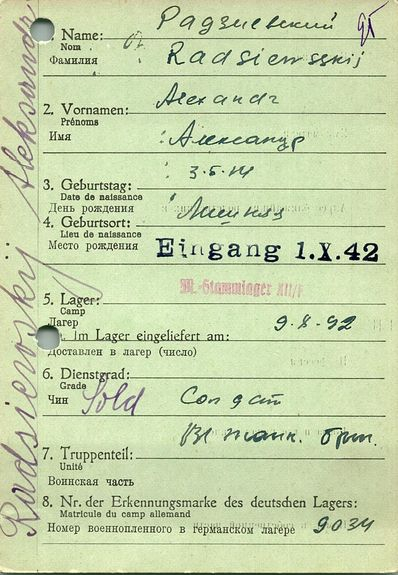 Радзиевский
1. Name:
Nom
Фамилия
Radsiewskij
2. Vornamen: Alexandr
Prénoms
Имя Александр
3.5.14
3. Geburtstag:
Date de naissance
День рождения
4. Geburtsort:
Lieu de naissance
Место рождения
Eingang 1.X.42
M.-Stammlager XII/F
5. Lager:
Camp
Лагерь
9.8.42
6. Im Lager eingeliefert am:
Доставлен в лагерь (число)
6. Dienstgrad:
Grade
Чин Sold Солдат
танк. бриг.
7. Truppenteil:
Unité
Воинская часть
8. Nr. der Erkennungsmarke des deutschen Lagers:
Matricule du camp allemand
Номер военнопленного в германском лагере 9034
Radsiewskij Aleksandr